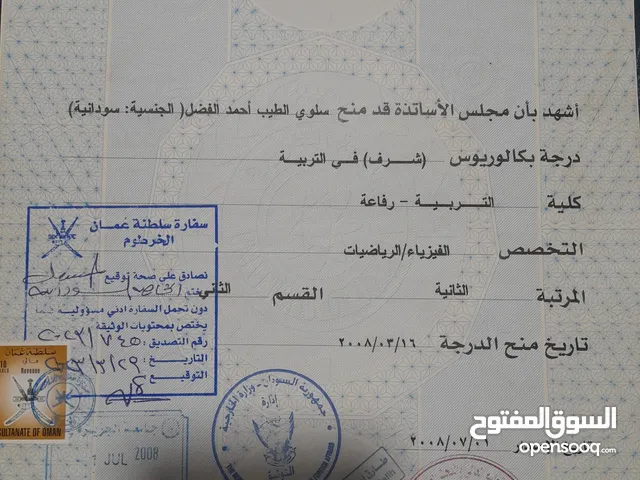 أشهد بأن مجلس الأساتذة قد منح سلوي الطيب أحمد الفضل( الجنسية: سودانية)
درجة بكالوريوس (شرف) في التربية
كلية التربية - رفاعة
التخصص الفيزياء/الرياضيات
المرتبة الثانية القسم الثاني
تاريخ منح الدرجة ٢٠٠٨/٠٣/١٦
سفارة سلطنة عمان
الخرطوم
نصادق على صحة توقيع
دون تحمل السفارة ادني مسؤولية فيما
يختص بمحتويات الوثيقة
رقم التصديق: ٢٠٢٣/٧٤٥
التاريخ: ٢٠٢٣/٣/٢٩
التوقيع
سلطنة عمان
Revenue
SULTANATE OF OMAN
1 JUL 2008
جمهورية السودان - وزارة الخارجية
إدارة
٢٠٠٨/٠٧/٠٦
السوق المفتوح
opensooq.com